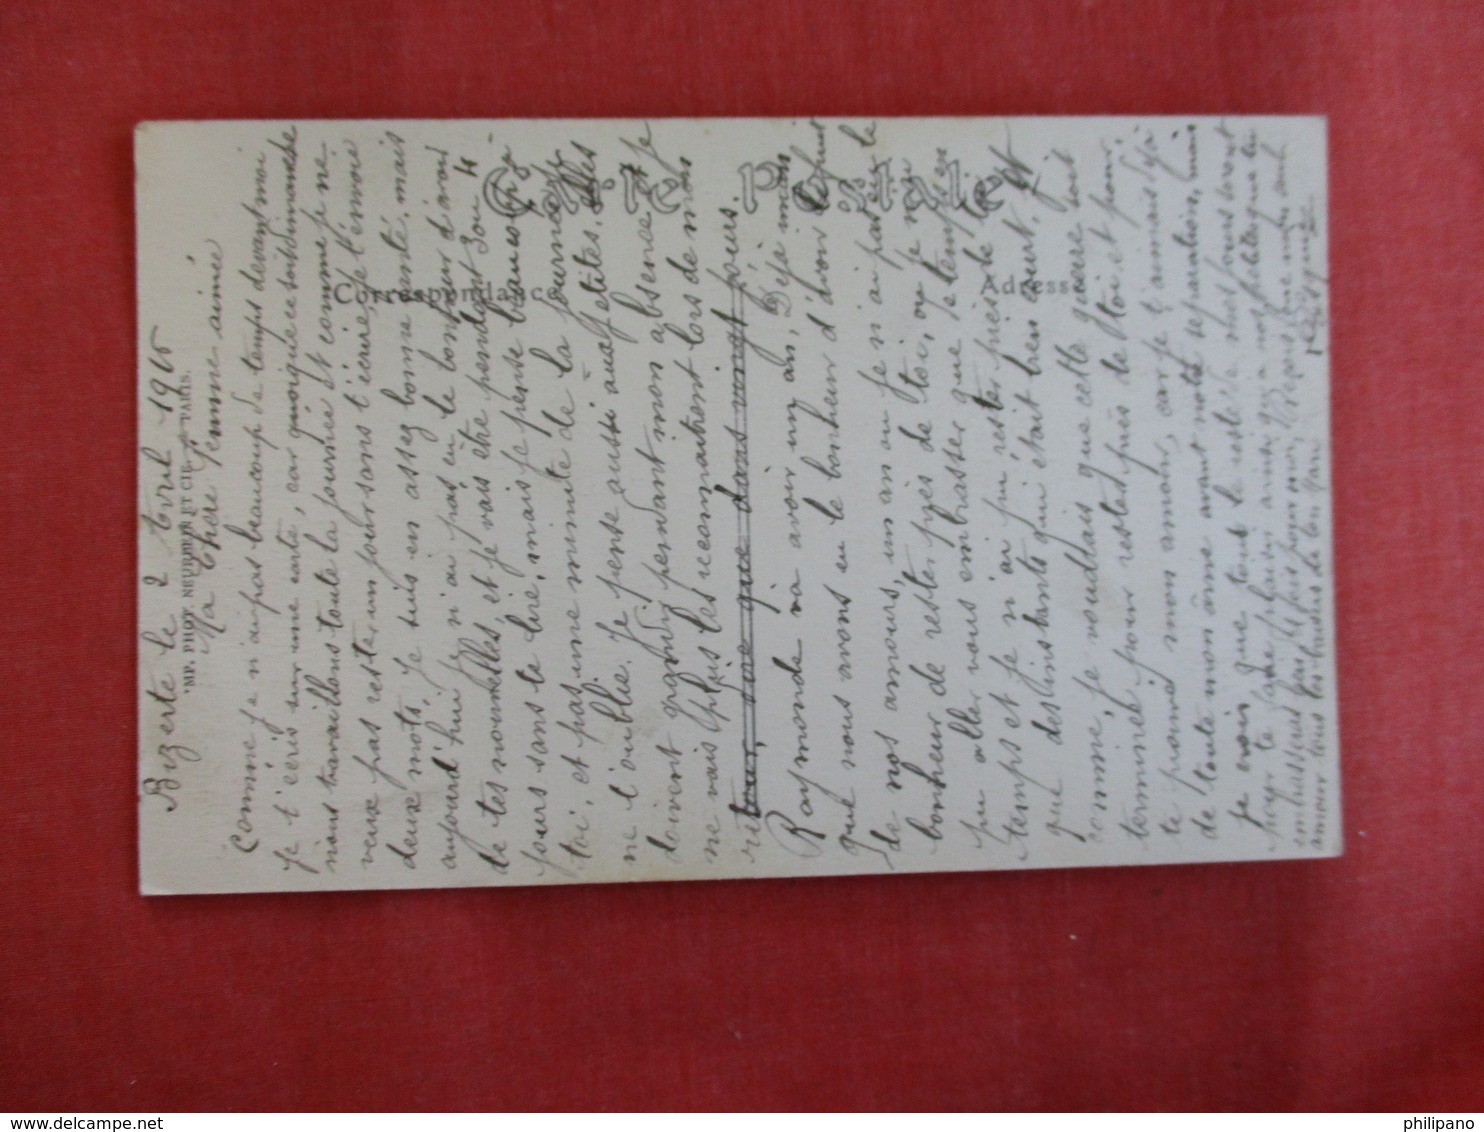 Bizerte le 2 Avril 1916
Ma Chère Femme aimée
Comme je n'ai pas beaucoup de temps devant moi
je t'écris sur une carte, car quoique ce soit dimanche
nous travaillons toute la journée et comme je ne
veux pas rester un jour sans t'écrire, je t'envoie
deux mots. Je suis en assez bonne santé, mais
aujourd'hui je n'ai pas eu le bonheur d'avoir
de tes nouvelles, et je vais être pendant 3 ou 4
jours sans te lire, mais je pense beaucoup à
toi, et pas une minute de la journée je
ne l'oublie. Je pense aussi aux petites. Elles
doivent grandir pendant mon absence et je
ne vais plus les reconnaître lors de mon
retour, que dans vingt jours.
Raymonde va avoir un an, Déjà mais
que nous avons eu le bonheur d'avoir le fruit
de nos amours, un an ou je n'ai pas eu le
bonheur de rester près de toi, ou je n'ai
pu aller vous embrasser que le temps
temps et je n'ai pu rester près de toi
que des instants qui était très court, et
comme je voudrais que cette guerre soit
terminée pour rester près de toi et pour
te prouver mon amour, car je t'aimais déjà
de toute mon âme avant notre séparation, mais
je crois que tout le reste de mes jours seront
pour te faire plaisir ainsi qu'a nos petites que tu
embrasseras bien fort pour moi, Reçois une
amour tous les baisers de ton mari
Carte Postale
Correspondance
Adresse
IMP. PHOT. NEURDEIN ET CIE. - PARIS.
philipano